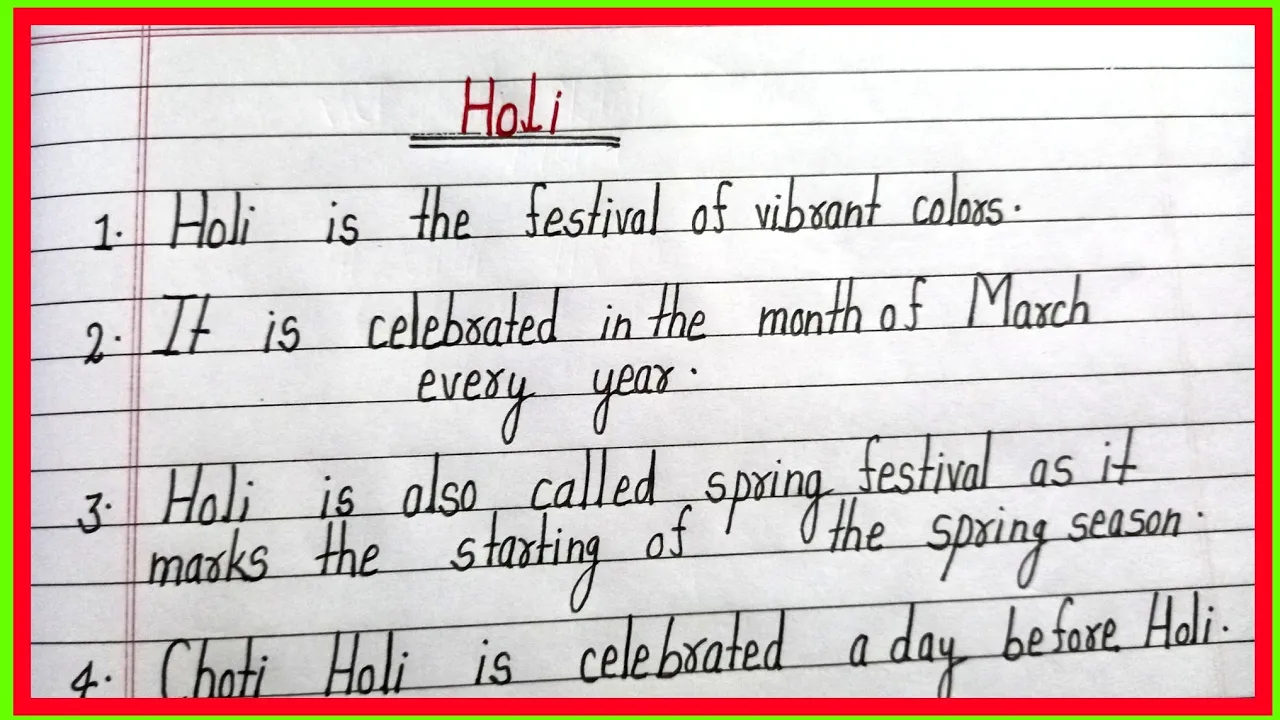 Holi
1. Holi is the festival of vibrant colors.
2. It is celebrated in the month of March
every year.
3. Holi is also called spring festival as it
marks the starting of the spring season.
4. Choti Holi is celebrated a day before Holi.